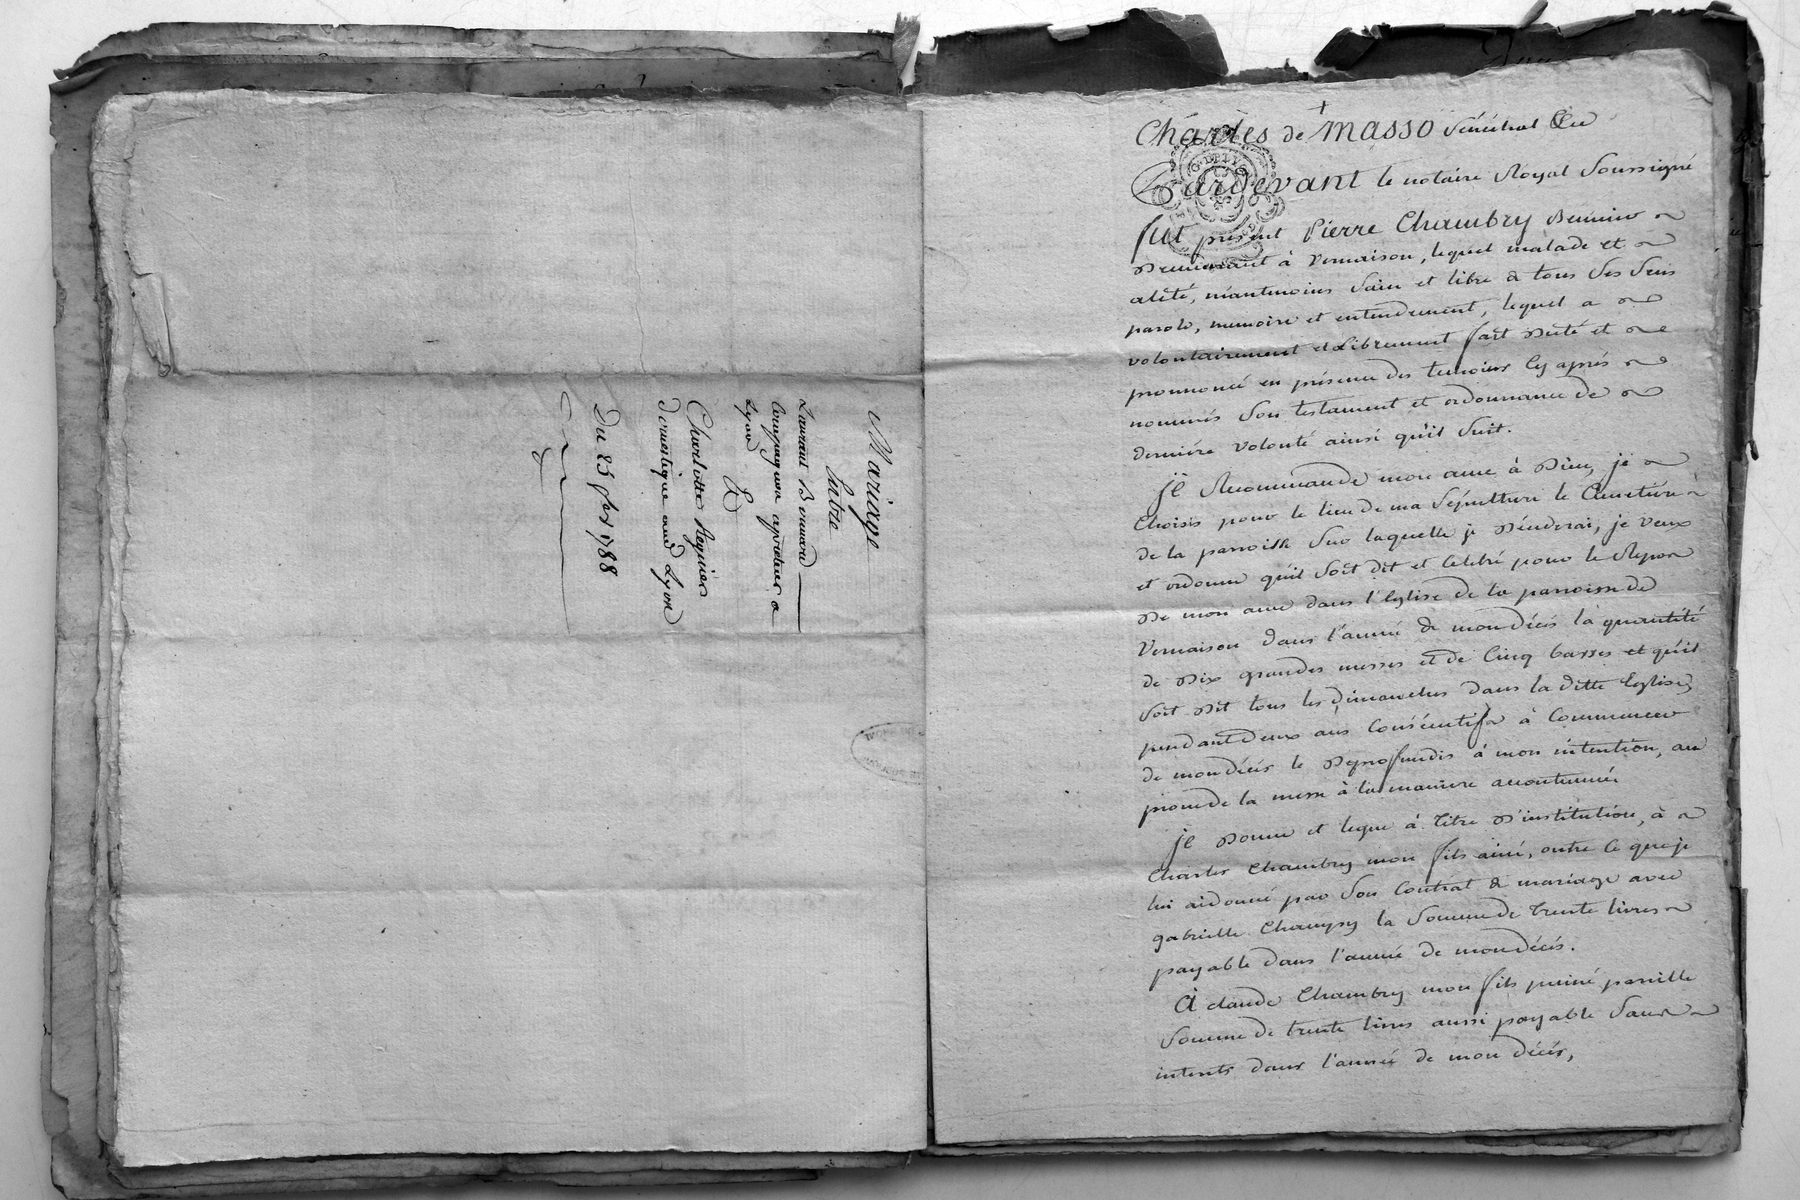 Mariage
Entre
Laurant Brunard
Compagnon apreteur a
Lyon
Et
Charlotte Reynier
domestique aud Lyon
Du 25 fer 1788
Charles de Masso Sénéchal &c
Pardevant le notaire Royal Soussigné
fut présent Pierre Chambry
Demeurant à Vernaison, lequel malade et
alité, néantmoins Sain et libre de tous Ses Sens
parole, mémoire et entendement, lequel a
volontairement et Librement fait Dicté et
prononcé en présence des temoins Cy après
nommés Son testament et ordonnance de
dernière volonté ainsi qu'il Suit.
Je Recommande mon ame à Dieu, je
Choisis pour le lieu de ma Sépulture le Cimetière
de la parroisse Sur laquelle je Décederai, je veux
et ordonne qu'il Soit Dit et Celebré pour le Repos
De mon ame dans l'Eglise de la parroisse de
Vernaison dans l'année de mon Décès la quantité
de Dix grandes messes et de Cinq basses et qu'il
Soit Dit tous les Dimanches dans la ditte Eglise
pendant Deux ans Consécutifs à Commencer
de mon Décès le Deprofundis à mon intention, au
prone de la messe à la manière accoutumée
Je Donne et legue à titre D'institution, à
Charles Chambry mon fils ainé, outre Ce que je
lui ai donné par Son Contrat de mariage avec
gabrielle Champsy la Somme de trente livres
payable dans l'année de mon décès.
A claude Chambry mon fils puiné pareille
Somme de trente livres aussi payable Sans
interets dans l'année de mon décès,